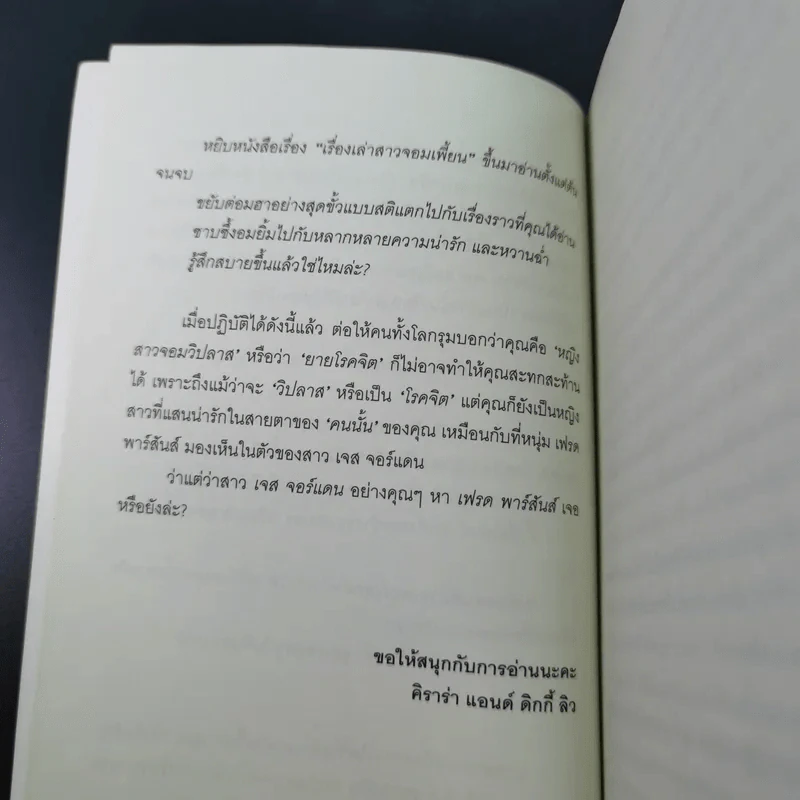 หยิบหนังสือเรื่อง “เรื่องเล่าสาวจอมเพี้ยน” ขึ้นมาอ่านตั้งแต่ต้น
จนจบ
ขยับต่อมฮาอย่างสุดขั้วแบบสติแตกไปกับเรื่องราวที่คุณได้อ่าน
ซาบซึ้งอมยิ้มไปกับหลากหลายความน่ารัก และหวานฉ่ำ
รู้สึกสบายขึ้นแล้วใช่ไหมล่ะ?
เมื่อปฏิบัติได้ดังนี้แล้ว ต่อให้คนทั้งโลกรุมบอกว่าคุณคือ ‘หญิง
สาวจอมวิปลาส’ หรือว่า ‘ยายโรคจิต’ ก็ไม่อาจทำให้คุณสะทกสะท้าน
ได้ เพราะถึงแม้ว่าจะ ‘วิปลาส’ หรือเป็น ‘โรคจิต’ แต่คุณก็ยังเป็นหญิง
สาวที่แสนน่ารักในสายตาของ ‘คนนั้น’ ของคุณ เหมือนกับที่หนุ่ม เฟรด
พาร์สันส์ มองเห็นในตัวของสาว เจส จอร์แดน
ว่าแต่ว่าสาว เจส จอร์แดน อย่างคุณๆ หา เฟรด พาร์สันส์ เจอ
หรือยังล่ะ?
ขอให้สนุกกับการอ่านนะคะ
คิราร่า แอนด์ ดิกกี้ ลิว